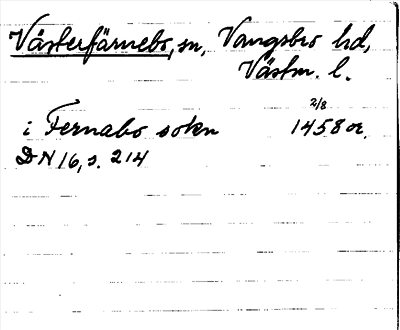 Västerfärnebo, sn, Vangsbro hd,
Västm. l.
i Fernabo sokn 2/8 1458 or.
DN 16, s. 214